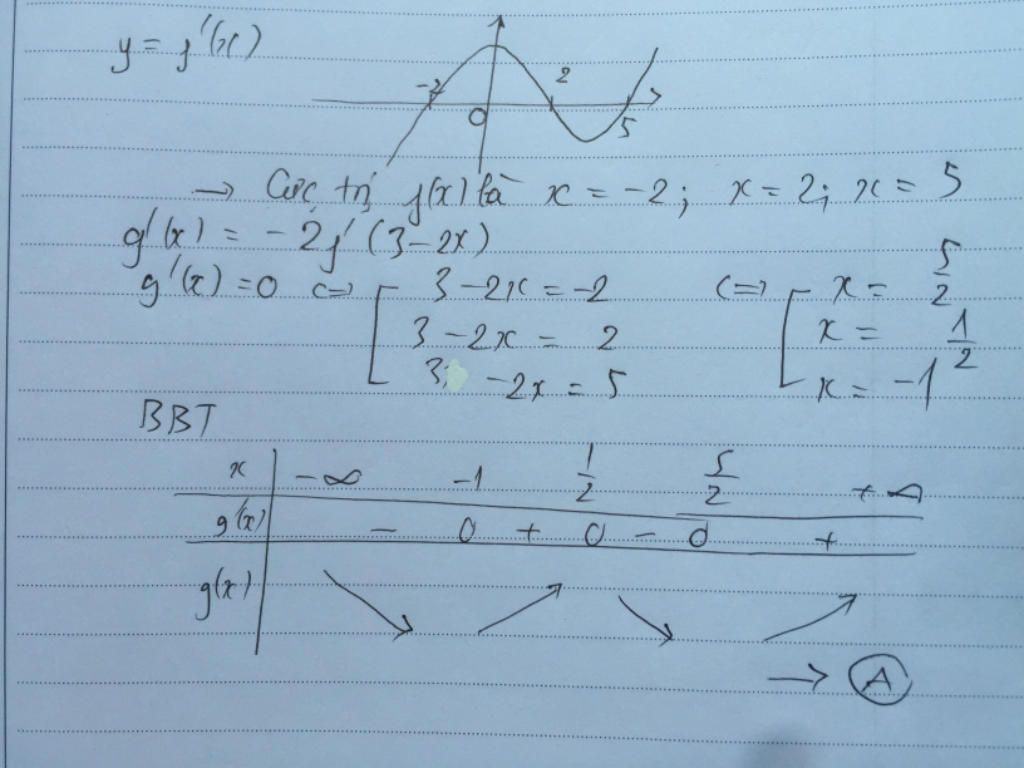 y = f'(x)
-2 0 2 5
→ Cực trị f(x) là x = -2; x = 2; x = 5
g'(x) = -2f'(3-2x)
g'(x) = 0 <=> [ 3-2x = -2 <=> [ x = 5/2
3-2x = 2 x = 1/2
3 -2x = 5 x = -1
BBT
x -∞ -1 1/2 5/2 +∞
g'(x) - 0 + 0 - 0 +
g(x) ↘ ↗ ↘ ↗
→ A